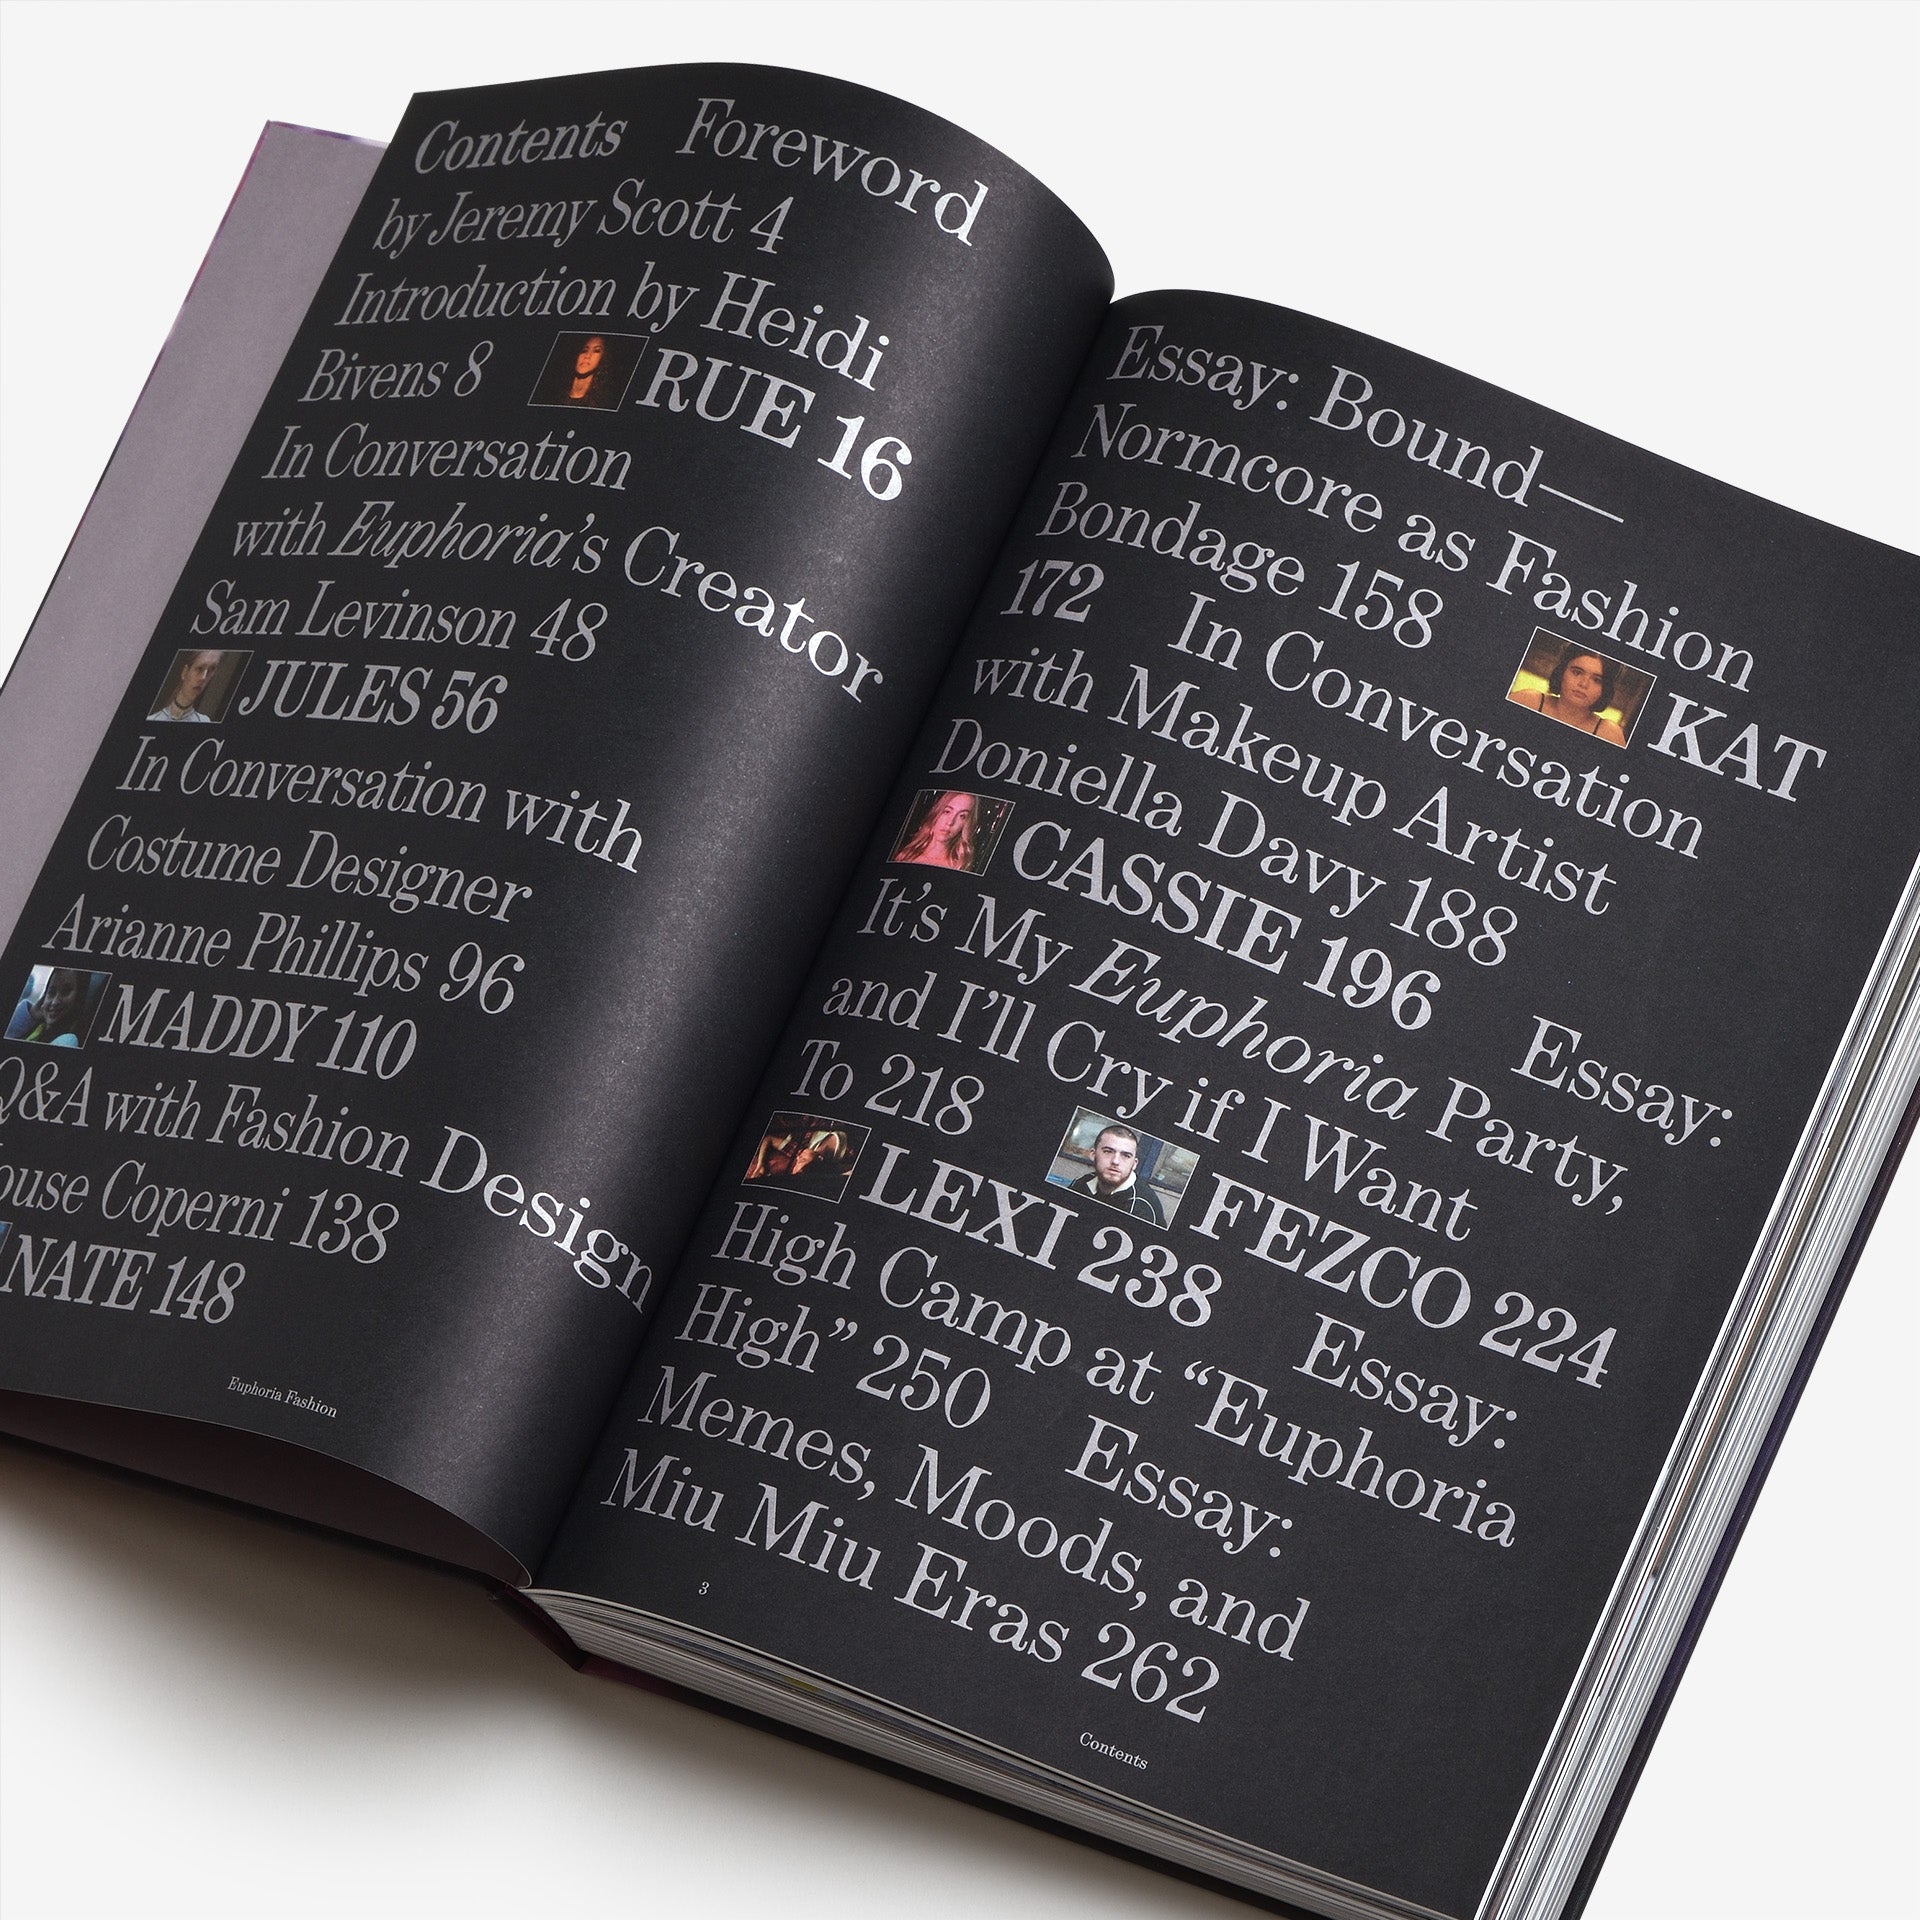 Contents Foreword
by Jeremy Scott 4
Introduction by Heidi
Bivens 8 RUE 16
In Conversation
with Euphoria's Creator
Sam Levinson 48
JULES 56
In Conversation with
Costume Designer
Arianne Phillips 96
MADDY 110
Q&A with Fashion Design
ouse Coperni 138
NATE 148
Euphoria Fashion
Essay: Bound—
Normcore as Fashion
Bondage 158 KAT
172 In Conversation
with Makeup Artist
Doniella Davy 188
CASSIE 196 Essay:
It's My Euphoria Party,
and I'll Cry if I Want
To 218 FEZCO 224
LEXI 238 Essay:
High Camp at “Euphoria
High” 250 Essay:
Memes, Moods, and
Miu Miu Eras 262
3
Contents